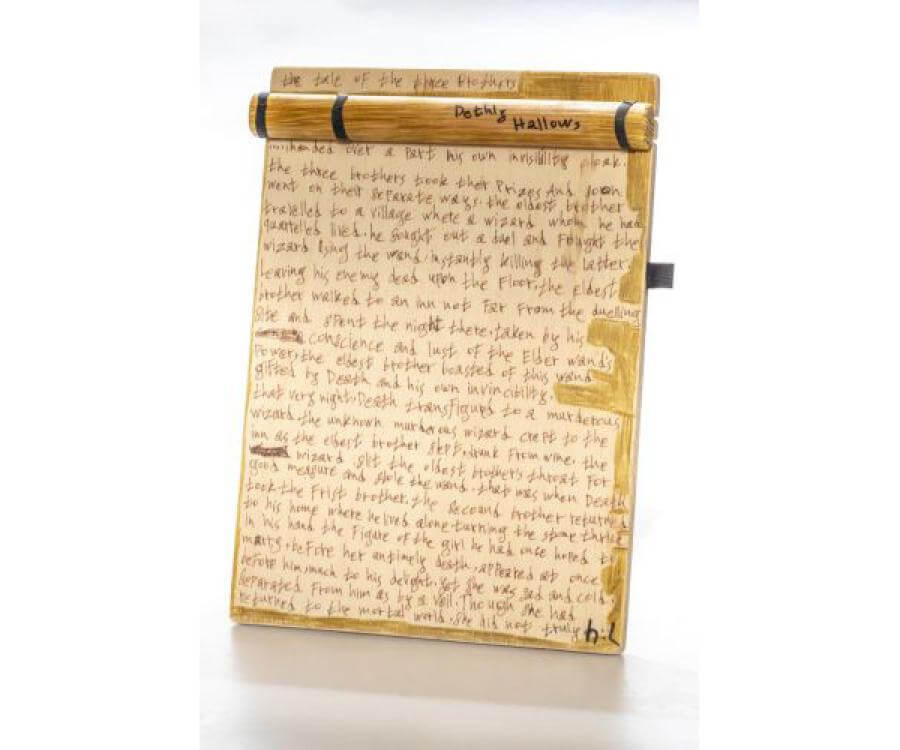 the tale of the three Brothers
Dethly
Hallows
handed over a Part his own invisibility cloak.
the three brothers took their Prizes And soon
went on their separate ways. the oldest brother
travelled to a village where a wizard whom he had
quartelled lived. he sought out a duel and Fought the
wizard using the wand. instantly killing the latter.
Leaving his enemy dead upon the Floor, the eldest
brother walked to an inn not Far From the duelling
Site and spent the night there. taken by his
conscience and lust of the Elder wand's
Power, the eldest brother boasted of this wand
gifted by Death and his own invincibility.
that very night, Death transFigured to a murderous
wizard. the unknown murderous wizard crept to the
inn as the eldest brother slept, drunk From wine. the
wizard slit the oldest brothers throat For
good measure and stole the wand. that was when Death
took the Frist brother. the second brother returned
to his home where he lived alone turning the stone thrice
in his hand the Figure of the girl he had once hoped to
marry, beFore her untimely death, appeared at once
beFore him, much to his delight. yet she was sad and cold,
separated From him as by a veil. Though she had
returned to the mortal world, she did not truly
h:L